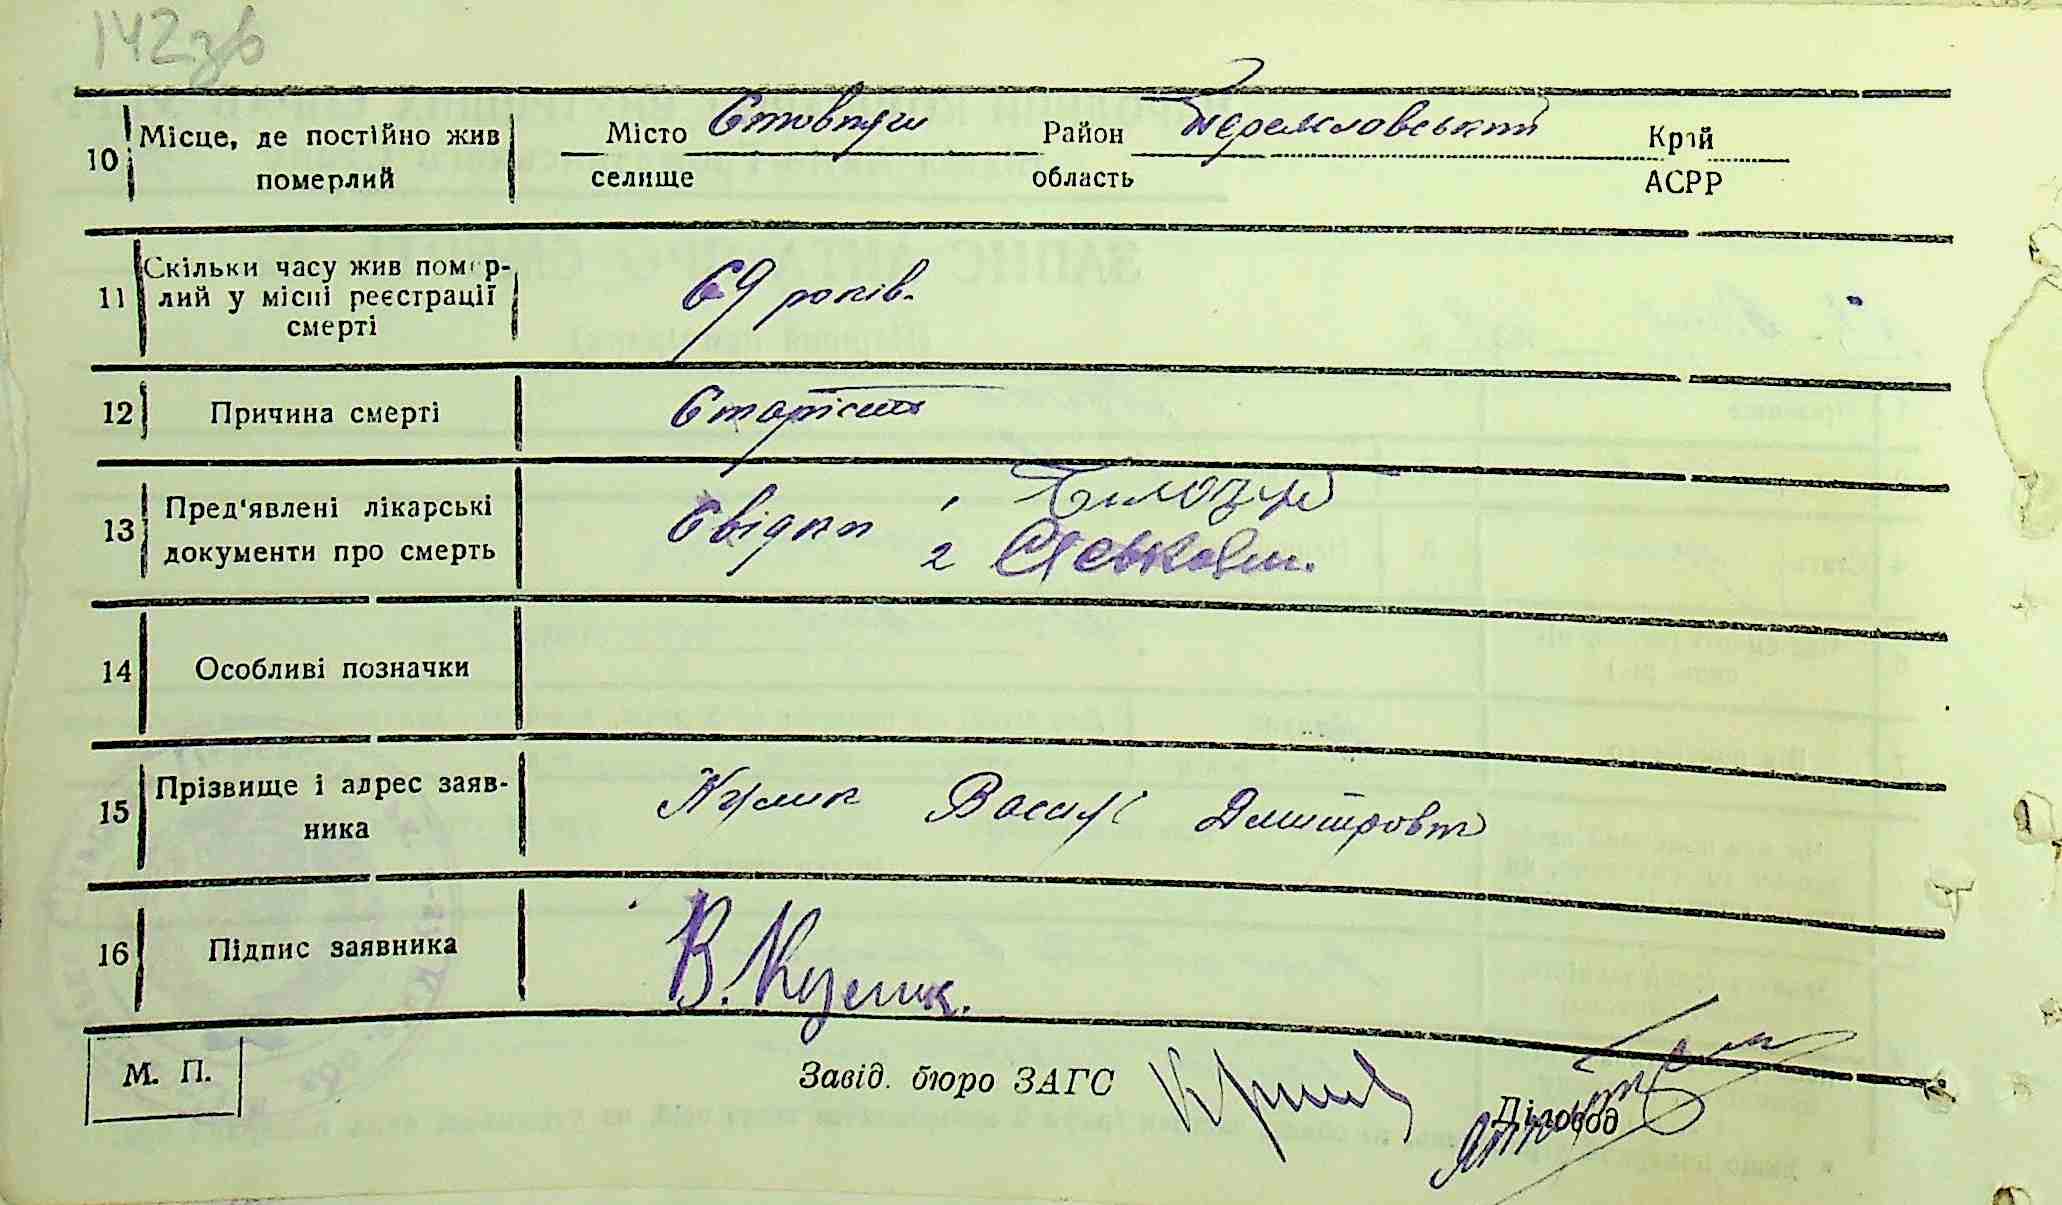 142зв
10 Місце, де постійно жив померлий Місто селище Стовпяги Район область Переяславський Край АСРР
11 Скільки часу жив помер-
лий у місці реєстрації
смерті 69 років.
12 Причина смерті Старість
13 Пред'явлені лікарські
документи про смерть Свідки 1
2
14 Особливі позначки
15 Прізвище і адрес заяв-
ника Кулик Василь Дмитрович
16 Підпис заявника В. Кулик.
М. П. Завід. бюро ЗАГС Діловод